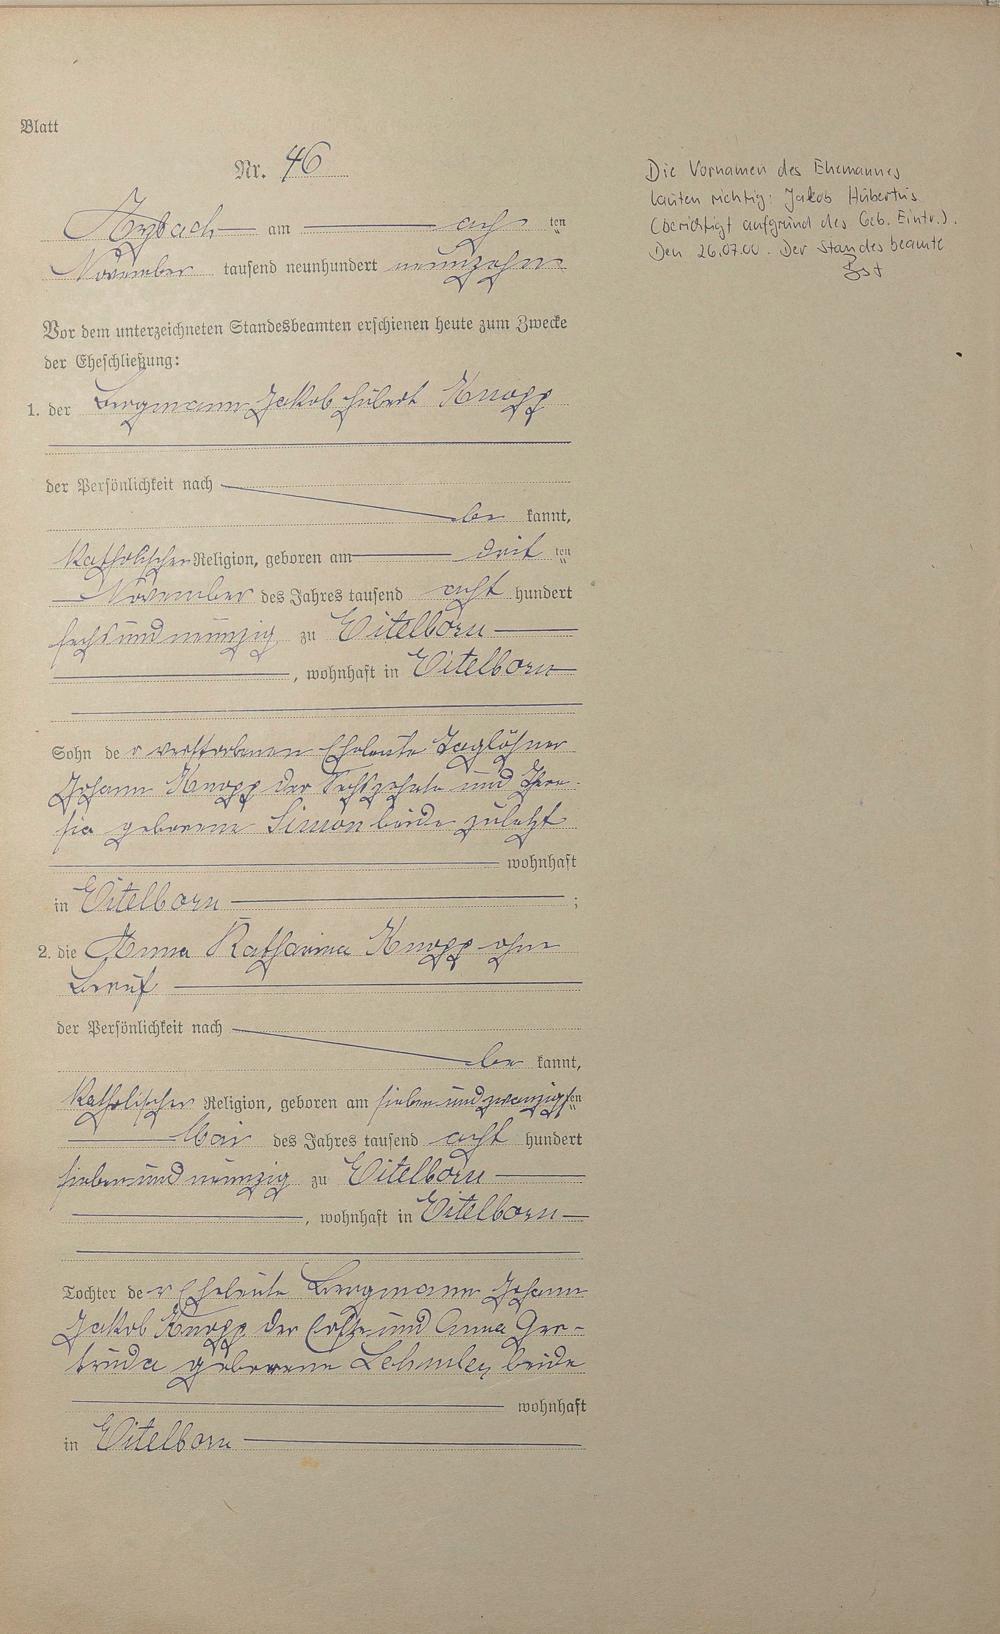 Blatt
Nr. 46
Arzbach am ach ten
November tausend neunhundert neunzehn
Vor dem unterzeichneten Standesbeamten erschienen heute zum Zwecke
der Eheschließung:
1. der Bergmann Jakob Hubert Knopp
der Persönlichkeit nach
be kannt,
katholischer Religion, geboren am drit ten
November des Jahres tausend acht hundert
sechsundneunzig zu Eitelborn
, wohnhaft in Eitelborn
Sohn de r verstorbenen Eheleute Taglöhner
Johann Knopp der Sechszehnte und There-
sia geborene Simon beide zuletzt
wohnhaft
in Eitelborn ;
2. die Anna Katharina Knopp ohne
Beruf
der Persönlichkeit nach
be kannt,
katholischer Religion, geboren am siebenundzwanzigsten
Mai des Jahres tausend acht hundert
siebenundneunzig zu Eitelborn
, wohnhaft in Eitelborn
Tochter de r Eheleute Bergmann Johann
Jakob Knopp der Elfte und Anna Ger-
truda geborene beide
wohnhaft
in Eitelborn
Die Vornamen des Ehemannes
lauten richtig: Jakob Hubertus
(berichtigt aufgrund des Geb. Eintr.).
Den 26.07.00. Der Standesbeamte